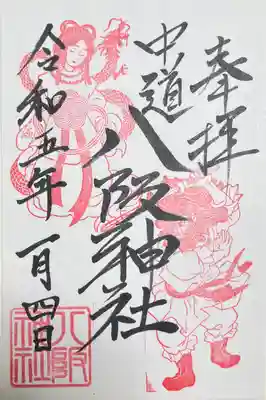 奉拝
中道
八阪神社
令和五年 一月四日
八阪
神社